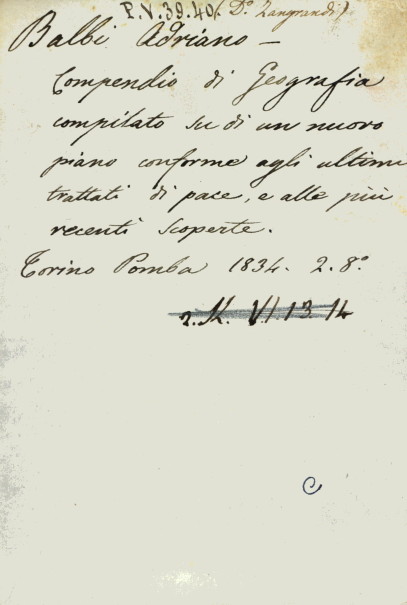 P.V.39.40. (D.º Zangrandi)
Balbi Adriano —
Compendio di Geografia
compilato su di un nuovo
piano conforme agli ultimi
trattati di pace, e alle più
recenti scoperte.
Torino Pomba 1834. 2. 8.º
2. K. VI.13.14
C